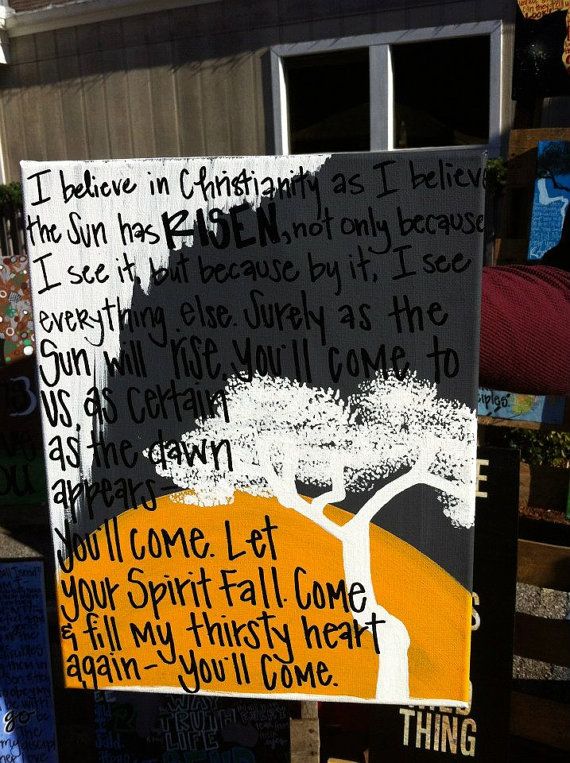 I believe in Christianity as I believe
the Sun has RISEN, not only because
I see it, but because by it, I see
everything else. Surely as the
Sun will rise, you'll come to
us, as certain
as the dawn
appears-
you'll come. Let
your Spirit Fall. Come
& fill my thirsty heart
again- you'll come.
WAY
TRUTH
LIFE
go
THING